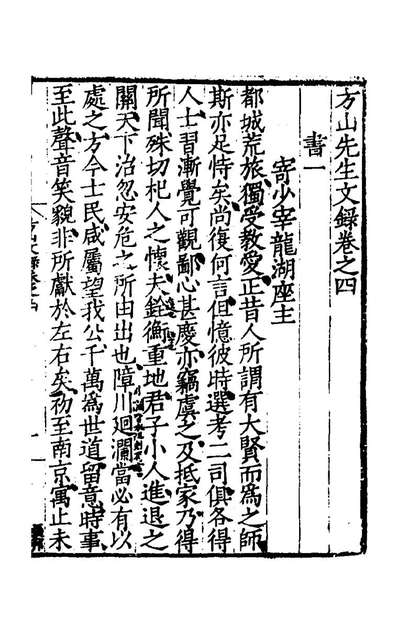 方山先生文録卷之四
書一
寄少宰龍湖座主
都城荒旅獨受教愛正昔人所謂有大賢而爲之師
斯亦足恃矣尚復何言但憶彼時選考二司俱各得
人士習漸覺可觀鄙心甚慶亦竊虞之及抵家乃得
所聞殊切杞人之懷夫銓衡重地君子小人進退之
關天下治忽安危之所由出也障川廻瀾當必有以
處之方今士民咸屬望我公千萬爲世道留意時事
至此聲音笑貌非所獻於左右矣初至南京寓止未